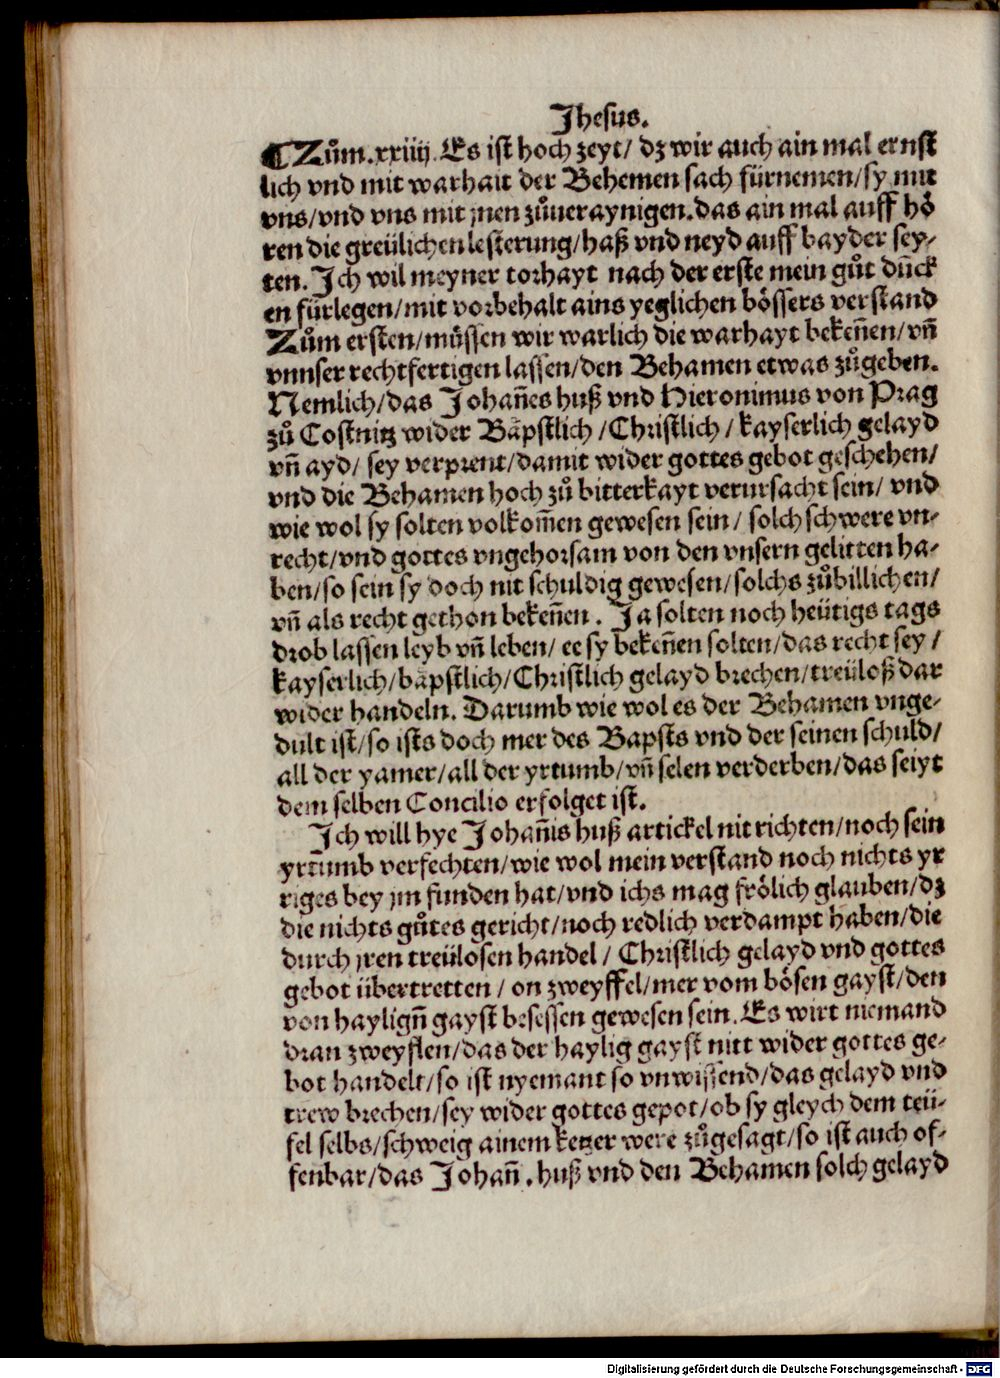 Jhesus.
¶Zům .xxiiij. Es ist hoch zeyt/ dz wir auch ain mal ernst
lich vnd mit warhait der Behemen sach fürnemen/sy mit
vns/vnd vns mit jnen zůueraynigen.das ain mal auff hö
ren die greülichen lesterung/haß vnd neyd auff bayder sey-
ten. Ich wil meyner torhayt nach der erste mein gůt dūck
en fürlegen/mit vorbehalt ains yeglichen bössers verstand
Zům ersten/müssen wir warlich die warhayt bekeñen/vñ
vnnser rechtfertigen lassen/den Behamen etwas zůgeben.
Nemlich/das Johañes huß vnd Hieronimus von Prag
zů Costnitz wider Bäpstlich/Christlich/kayserlich gelayd
vñ ayd/ sey verprent/damit wider gottes gebot geschehen/
vnd die Behamen hoch zů bitterkayt verursacht sein/ vnd
wie wol sy solten volkom̄en gewesen sein/ solch schwere vn-
recht/vnd gottes vngehorsam von den vnsern gelitten ha-
ben/so sein sy doch nit schuldig gewesen/solchs zůbillichen/
vñ als recht gethon bekeñen. Ja solten noch heütigs tags
drob lassen leyb vñ leben/ ee sy bekeñen solten/das recht sey/
kayserlich/bäpstlich/Christlich gelayd brechen/treüloß dar
wider handeln. Darumb wie wol es der Behamen vnge-
dult ist/so ists doch mer des Bapsts vnd der seinen schuld/
all der yamer/all der yrtumb/vñ selen verderben/das seiyt
dem selben Concilio erfolget ist.
Ich will hye Johañis huß artickel nit richten/noch sein
yrtumb verfechten/wie wol mein verstand noch nichts yr
riges bey jm funden hat/vnd ichs mag frölich glauben/dz
die nichts gůtes gericht/noch redlich verdampt haben/die
durch jren treülosen handel/ Christlich gelayd vnd gottes
gebot übertretten/ on zweyffel/mer vom bösen gayst/den
von hayligñ gayst besessen gewesen sein. Es wirt niemand
dran zweyflen/das der haylig gayst nitt wider gottes ge-
bot handelt/so ist nyemant so vnwissend/das gelayd vnd
trew brechen/sey wider gottes gepot/ob sy gleych dem teü-
fel selbs/schweig ainem ketzer were zůgesagt/so ist auch of-
fenbar/das Johañ. huß vnd den Behamen solch gelayd
Digitalisierung gefördert durch die Deutsche Forschungsgemeinschaft - DFG